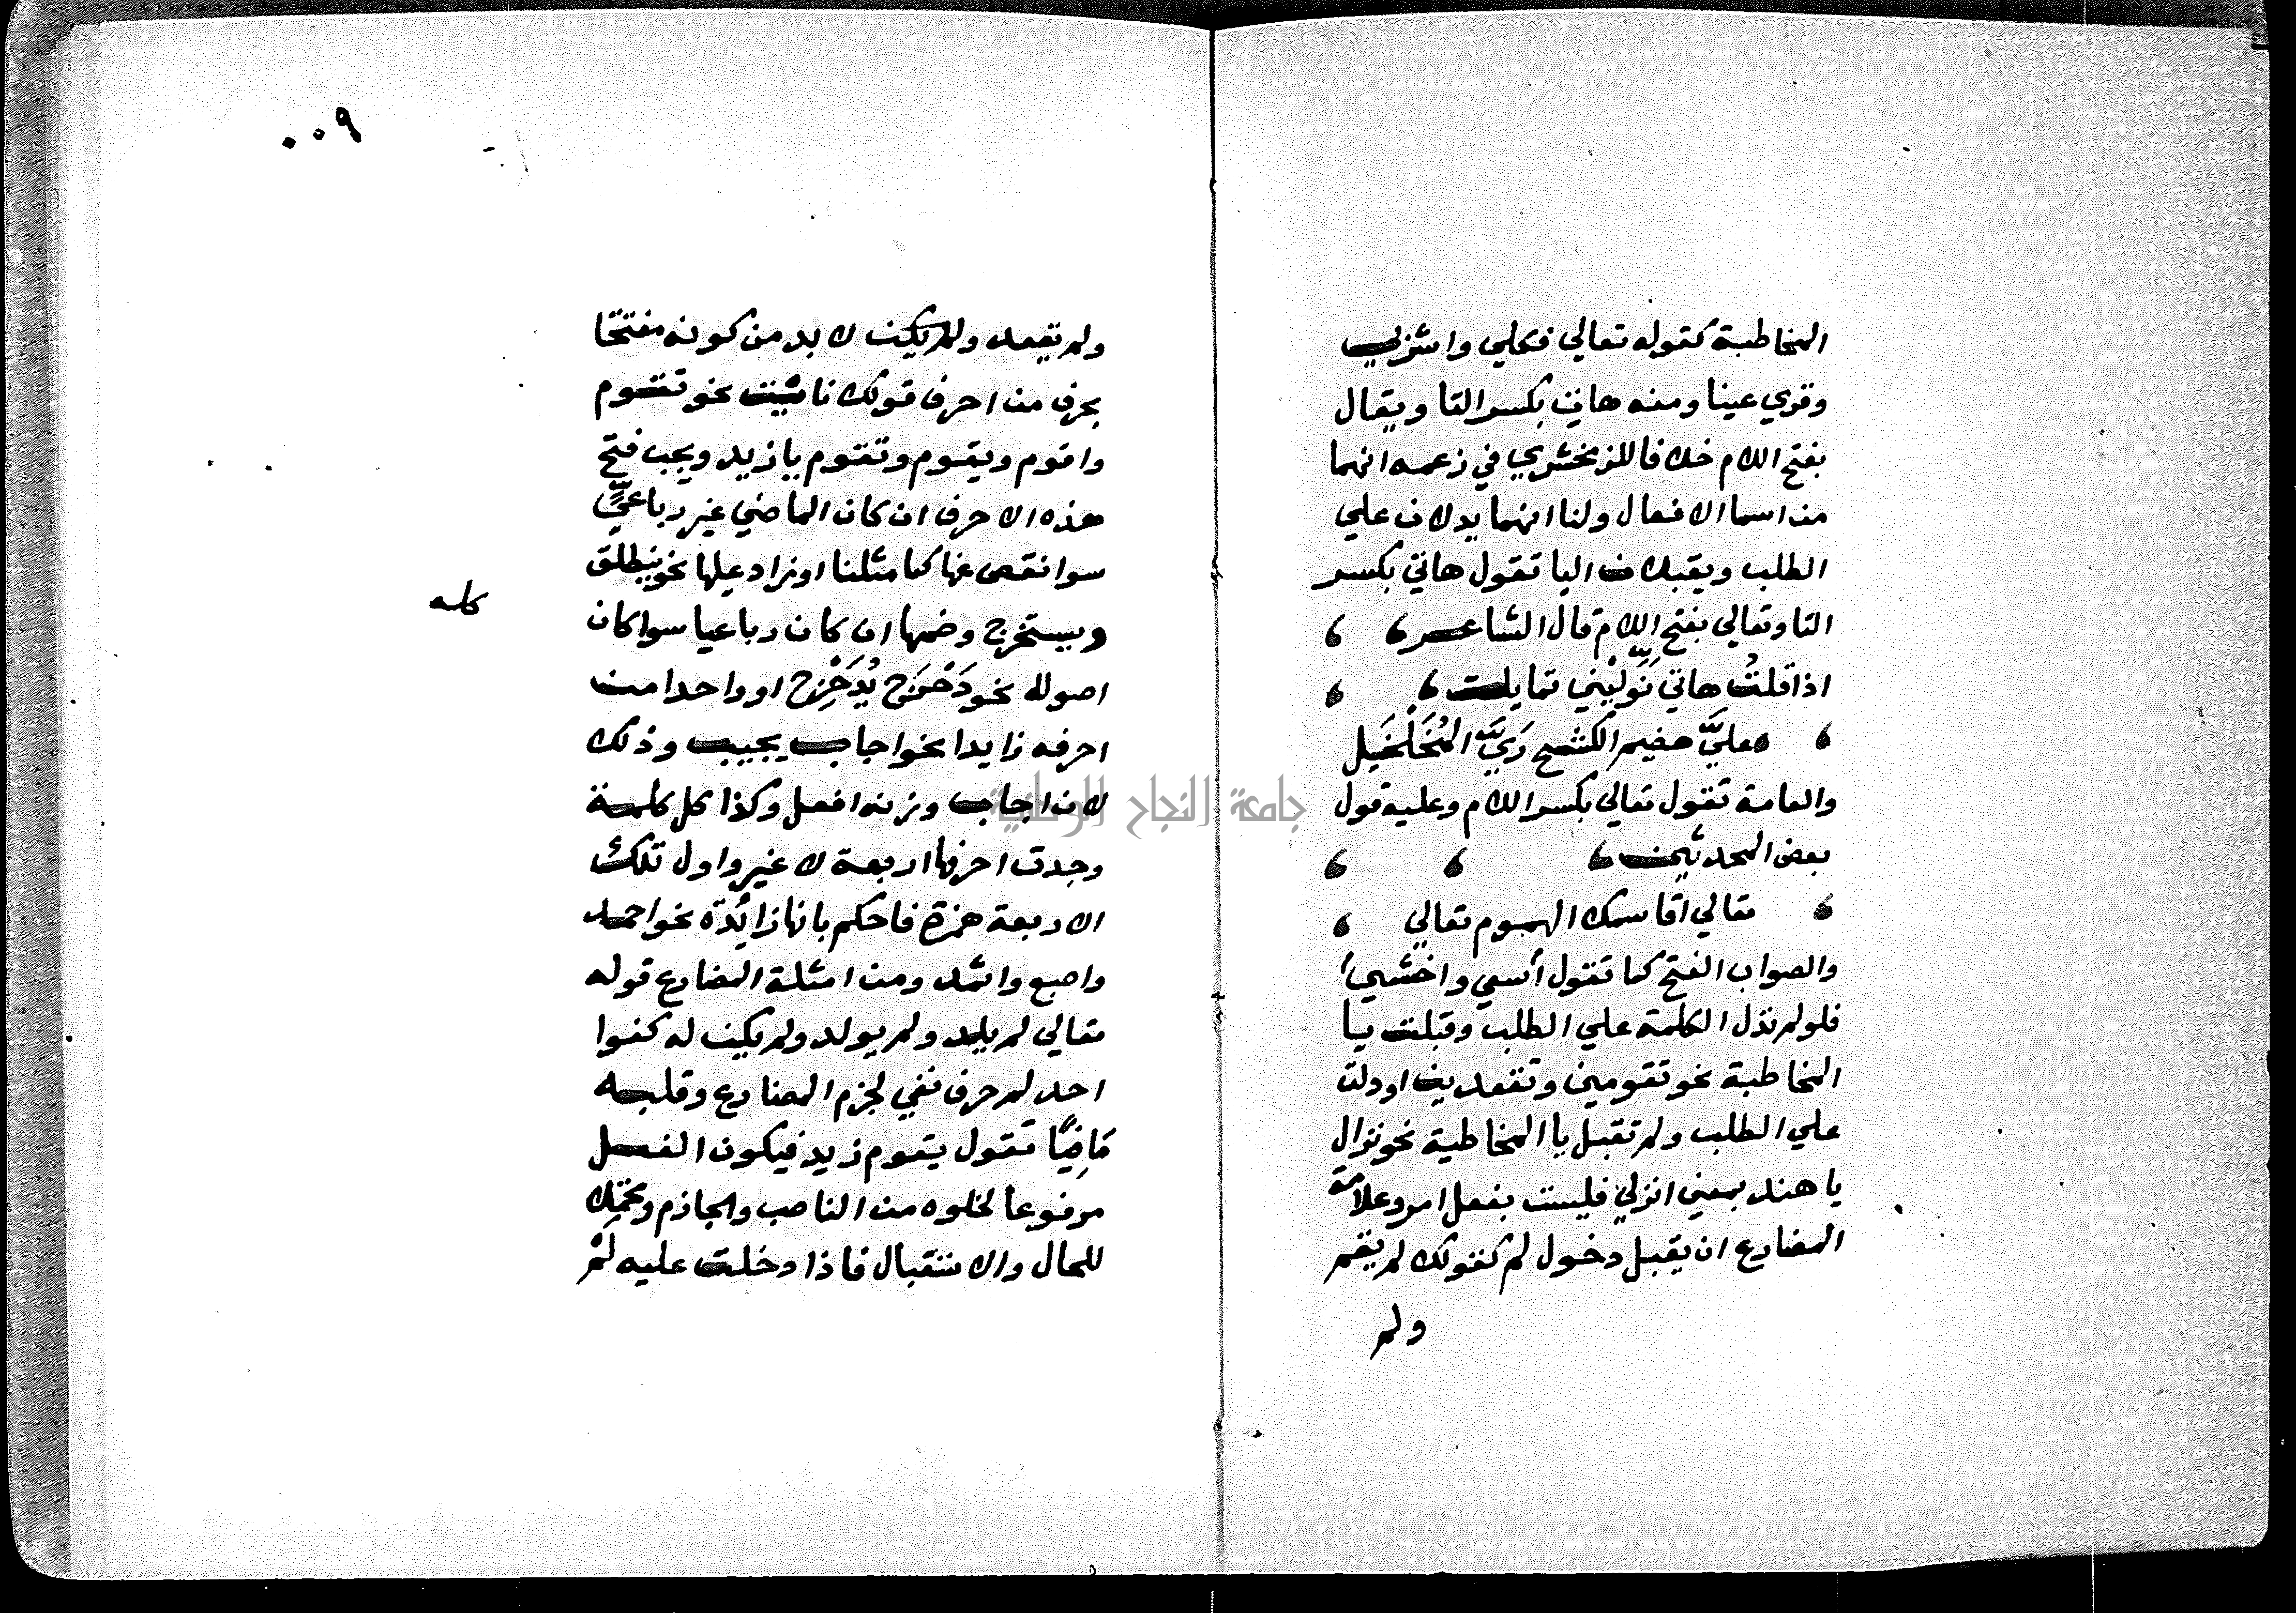 المخاطبة كقوله تعالي فكلي واشربي
وقري عينا ومنه هات بكسر التا ويقال
بفتح اللام خلافا للزمخشري في زعمه انهما
من اسما الافعال ولنا انهما يدلان علي
الطلب ويقبلان اليا تقول هاتي بكسر
التا وتعالي بفتح اللام قال الشاعر
اذا قلتُ هاتي نَوِّلْيني تمايلت
عليَّ هضيم الكشح رَيَّ المُخَلْخَيل
والعامة تقول تعالي بكسر اللام وعليه قول
بعض المحدثين
تعالي اقاسمك الهموم تعالي
والصواب الفتح كما تقول أسي واخشيأ
فلو لم تدل الكلمة علي الطلب وقبلت يا
المخاطبة نحو تقومين وتقعدين او دلت
علي الطلب ولم تقبل يا المخاطبة نحو نزال
يا هند بمعني انزلي فليست بفعل امر وعلامة
المضارع ان يقبل دخول لم كقولك لم يقم
ولم
٠٠٩
ولم تقعد ولم يكن لا بد من كونه مفتتحا
بحرف من احرف قولك نائيت نحو تقوم
واقوم ويقوم وتقوم يا زيد ويجب فتح
هذه الاحرف ان كان الماضي غير رباعيٍّ
سوا نقص عنها كما مثلنا او زاد عليها نحو ينطلق
ويستخرج وضمها ان كان رباعيا سوا كان
كله
اصوله نحو دَحْرَج يُدَحْرِج او واحدا من
احرفه زايدا نحو اجاب يجيب وذلك
لان اجاب وزنه افعل وكذا كل كلمة
وجدت احرفها اربعة لا غير واول تلك
الاربعة همزة فاحكم بانها زائدة نحو احمد
واصبع واثمد ومن امثلة المضارع قوله
تعالي لم يلد ولم يولد ولم يكن له كفوا
احد لم حرف نفي لجزم المضارع وقلبه
مَاضِيًا تقول يقوم زيد فيكون الفعل
مرفوعا لخلوه من الناصب والجازم ومحتملا
للحال والاستقبال فاذا دخلت عليه لَمْ
جامعة النجاح الوطنية